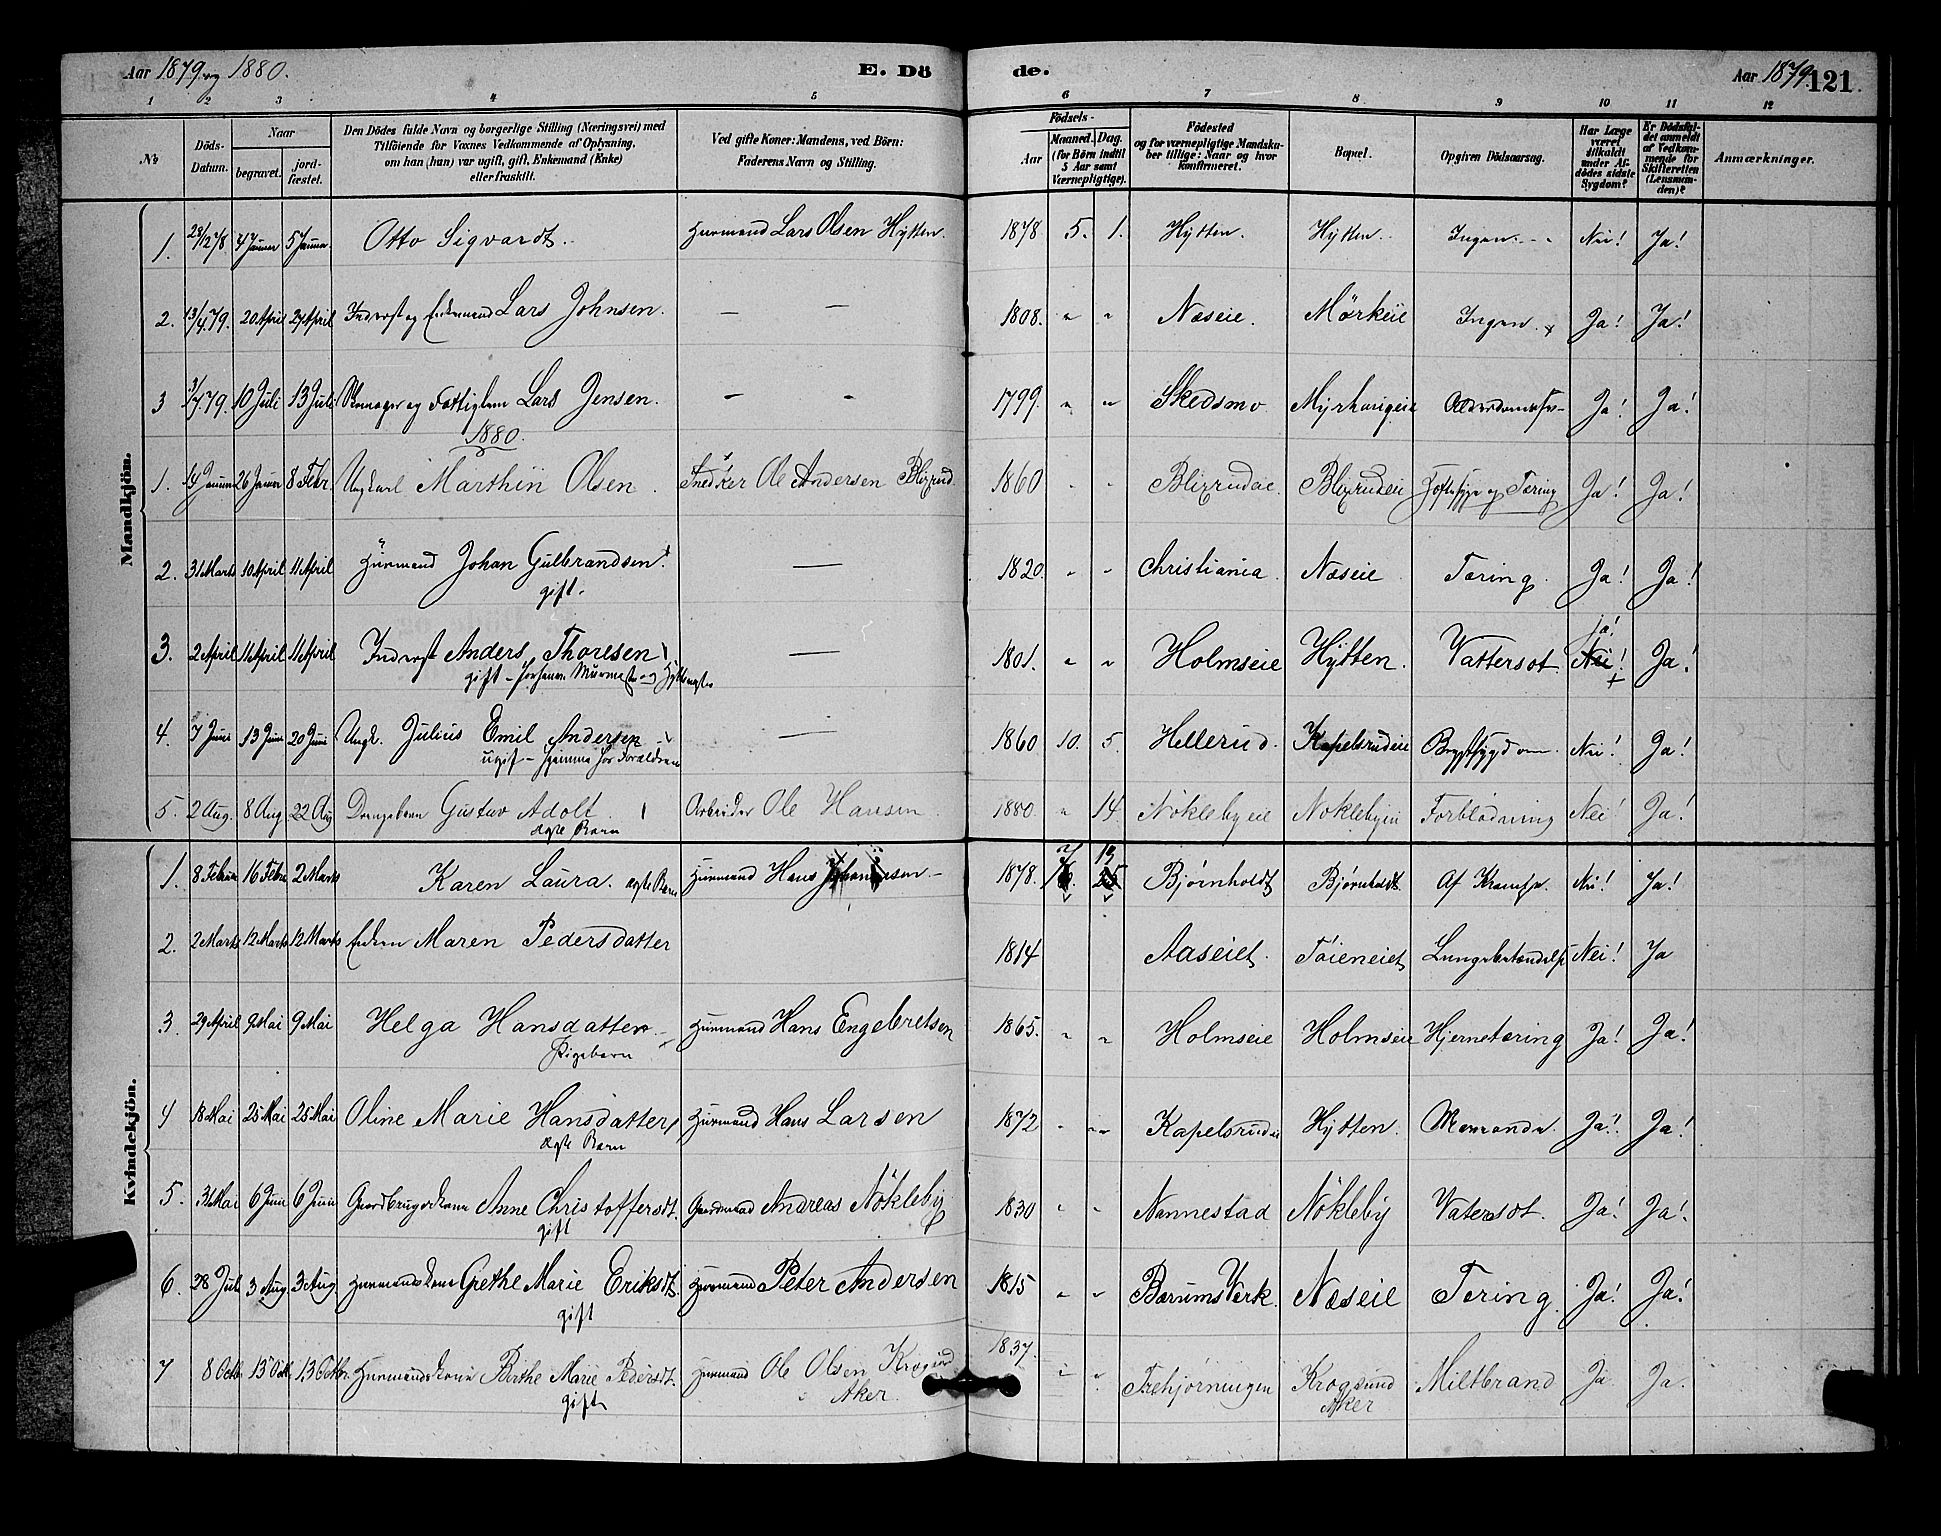 Aar 1879 og 1880. E. Dö de. Aar 1879. 121
1 2 3 4 5 6 7 8 9 10 11 12
No
Döds-Datum.
Naar
begravet. jord-fæstet.
Den Dödes fulde Navn og borgerlige Stilling (Næringsvei) med
Tilföiende for Voxnes Vedkommende af Oplysning,
om han (hun) var ugift, gift, Enkemand (Enke)
eller fraskilt.
Ved gifte Koner: Mandens, ved Börn:
Faderens Navn og Stilling.
Födsels-
Aar Maaned. Dag.
(for Börn indtil
5 Aar samt
Værnepligtige).
Födested
og for værnepligtige Mandska-
ber tillige: Naar og hvor
konfirmeret.
Bopæl.
Opgiven Dödsaarsag.
Har Læge
været
tilkaldt
under Af-
dödes sidste
Sygdom?
Er Dödsfal-
det anmeldt
af Vedkom-
mende for
Skifteretten
(Lensman-
den)?
Anmærkninger.
Mandkjön.
1. 28/12 78. 4 Januar 5 Januar Otto Sigvardt. Husmand Lars Olsen Hytten. 1878 5. 1. Hytten. Hytten. Ingen Nei! Ja!
2. 13/4 79. 20 April 27 April Inderst og Enkemand Lars Johnsen. — — 1808. " " Næseie. Mørkeie Ingen. Ja! Ja!
3 3/7 79. 10 Juli 13 Juli og Fattiglem Lars Jensen. — - 1799. " " Skedsmo Myrhaugeie Ja! Ja!
1880.
1. 26 Januar 8 Febr. Ungkarl Marthin Olsen. Snedker Ole Andersen Blixrud. 1860 " " Blixrudeie Blixrudeie og Tæring Ja! Ja!
2. 31 Marts 10 April 11 April Husmand Johan Gulbrandsen. — 1820. " " Christiania. Næseie Tæring. Ja! Ja!
gift.
3. 2 April 11 April 11 April Inderst Anders Thoresen — 1801. " " Holmseie Hytten. Vattersot. Nei! Ja! Ja!
gift
4. 7 Juni 13 Juni 20 Juni Ungk. Julius Emil Andersen — 1860 10. 5. Hellerud. Kapelsrudeie Brystsygdom. Nei! Ja!
ugift - hjemme hos Forældrene
5. 2 Aug. 8 Aug 22 Aug Drengebarn Gustav Adolf. Arbeider Ole Hansen. 1880. " 14. Nöklebyeie Nöklebyeie Forblödning Nei! Ja!
ægte Barn
Kvindekjön.
1. 8 Februar 16 Febr 2 Marts Karen Laura. ægte Barn Husmand Hans Johannesen. 1878. 7 13 25 Bjørnholdt Bjørnholdt Af Krampe. Nei! Ja!
2. 2 Marts 12 Marts 12 Marts Enken Maren Pedersdatter 1814 Aaseiet. Töieneiet Lungebetændelse Nei! Ja
3. 29 April 9 Mai 9 Mai Helga Hansdatter Husmand Hans Engebretsen 1865. " " Holmseie Holmseie Hjernetæring Ja! Ja!
Pigebarn
4 18 Mai 25 Mai 25 Mai Oline Marie Hansdatter Husmand Hans Larsen 1872 " " Kapelsrudeie Hytten. Ja! Ja!
ægte Barn
5. 31 Mai 6 Juni 6 Juni Gaardbrugerkone Anne Christoffersdt. Gaardmand Andreas Nökleby 1830 " " Nannestad Nökleby Vatersot. Ja! Ja!
gift
6. 28 Juli 3 Aug. 3 Aug Husmandskone Grethe Marie Eriksdt. Husmand Peter Andersen 1815 " " Bærums Verk. Næseie Tæring. Ja! Ja!
gift
7 8 Octb. 13 Octb. 13 Octbr. Husmandskone Birthe Marie Pedersdt. Husmand Ole Olsen Krogsund 1837. " " Trehjørningen Krogsund Miltbrand Ja Ja.
gift i Aker. Aker